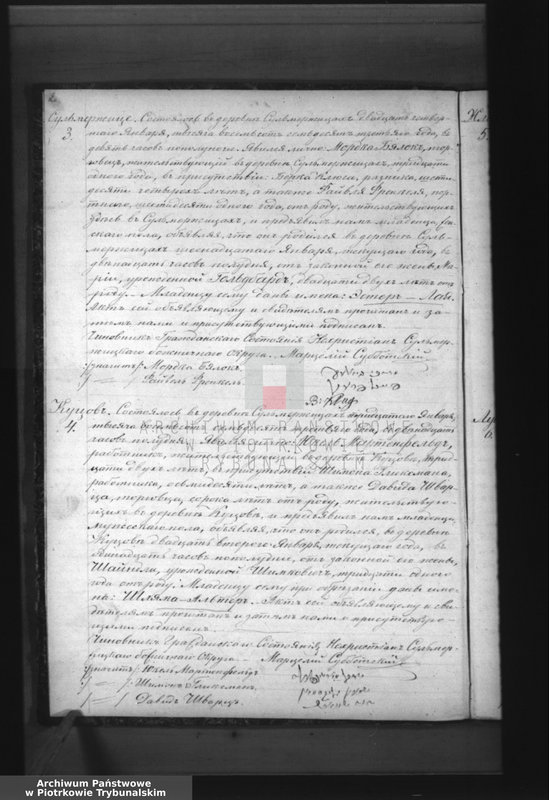 Сульмержице. Состоялось въ деревнѣ Сульмержицахъ двадцать четвер-
3.
таго Января, тысяча восемьсотъ семьдесятъ третьяго года, въ
девять часовъ пополуночи. Явился лично Мордка Бялокъ, тор-
говецъ, жительствующій въ деревнѣ Сульмержицахъ, тридцати
одного года, въ присутствіи Берка Клюга, рѣзника, шести-
десяти четырехъ лѣтъ, а также Файвля Френкеля, порт-
наго, шестидесяти одного года, отъ роду, жительствующихъ
здѣсь въ Сульмержицахъ, и предъявилъ намъ младенца, жен-
скаго пола, объявляя, что онъ родился въ деревнѣ Суль-
мержицахъ шестнадцатаго Января, текущаго года, въ
двѣнадцать часовъ полудня, отъ законной его жены Ма-
ріи, урожденной Гольдбардъ, двадцати двухъ лѣтъ отъ
роду. Младенцу сему даны имена: Эстеръ — Лая.
Актъ сей объявляющему и свидѣтелямъ прочитанъ и за-
тѣмъ нами и присутствующими подписанъ.
Чиновникъ Гражданскаго Состоянія Нехристіанъ Сульмер-
жицкаго божничнаго Округа. Марцелій Субботскій
/ Мордка Бялокъ.
/ Файвель Френкель.
Куцовъ. Состоялось въ деревнѣ Сульмержицахъ тридцатаго Января,
4.
тысяча восемьсотъ семьдесятъ третьяго года, въ двѣнадцать
часовъ полудня. Явился лично Юкель Мартенфельдъ,
работникъ, жительствующій въ деревнѣ Куцовъ, трид-
цати двухъ лѣтъ, въ присутствіи Шимона Гликсмана,
работника, семидесяти лѣтъ, а также Давида Швар-
ца, торговца, сорока лѣтъ отъ роду, жительствую-
щихъ въ деревнѣ Куцовъ, и предъявилъ намъ младенца,
мужескаго пола, объявляя, что онъ родился, въ деревнѣ
Куцовъ двадцать втораго Января, текущаго года, въ
часовъ пополудни, отъ законной его жены,
Шайндли, урожденной Шимковичъ, тридцати одного
года отъ роду. Младенцу сему при обрѣзаніи даны име-
на: Шляма-Альтеръ. Актъ сей объявляющему и сви-
дѣтелямъ прочитанъ и затѣмъ нами и присутствую-
щими подписанъ.
Чиновникъ Гражданскаго Состоянія Нехристіанъ Сульмер-
жицкаго божничнаго Округа — Марцелій Субботскій
/ Юкель Мартенфельдъ
/ Шимонъ Гликсманъ,
/ Давидъ Шварцъ.
5.
6.
Archiwum Państwowe
w Piotrkowie Trybunalskim